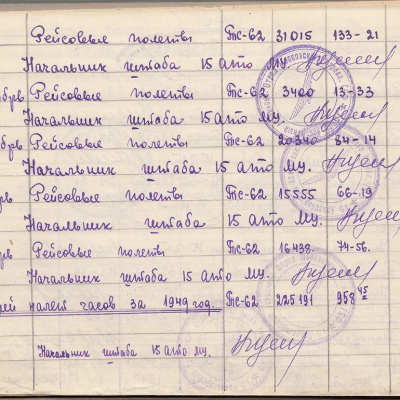 Рейсовые полеты Пс-62 31015 133-21
Начальник штаба 15 ато му.
Рейсовые полеты Пс-62 3400 13-33
Начальник штаба 15 ато му.
Рейсовые полеты Пс-62 20340 84-14
Начальник штаба 15 ато му.
Рейсовые полеты Пс-62 15555 66-19
Начальник штаба 15 ато му.
Рейсовые полеты Пс-62 16438 74-56.
Начальник штаба 15 ато му.
налет часов за 1949 год. Пс-62 225191 958 45
Начальник штаба 15 ато му.